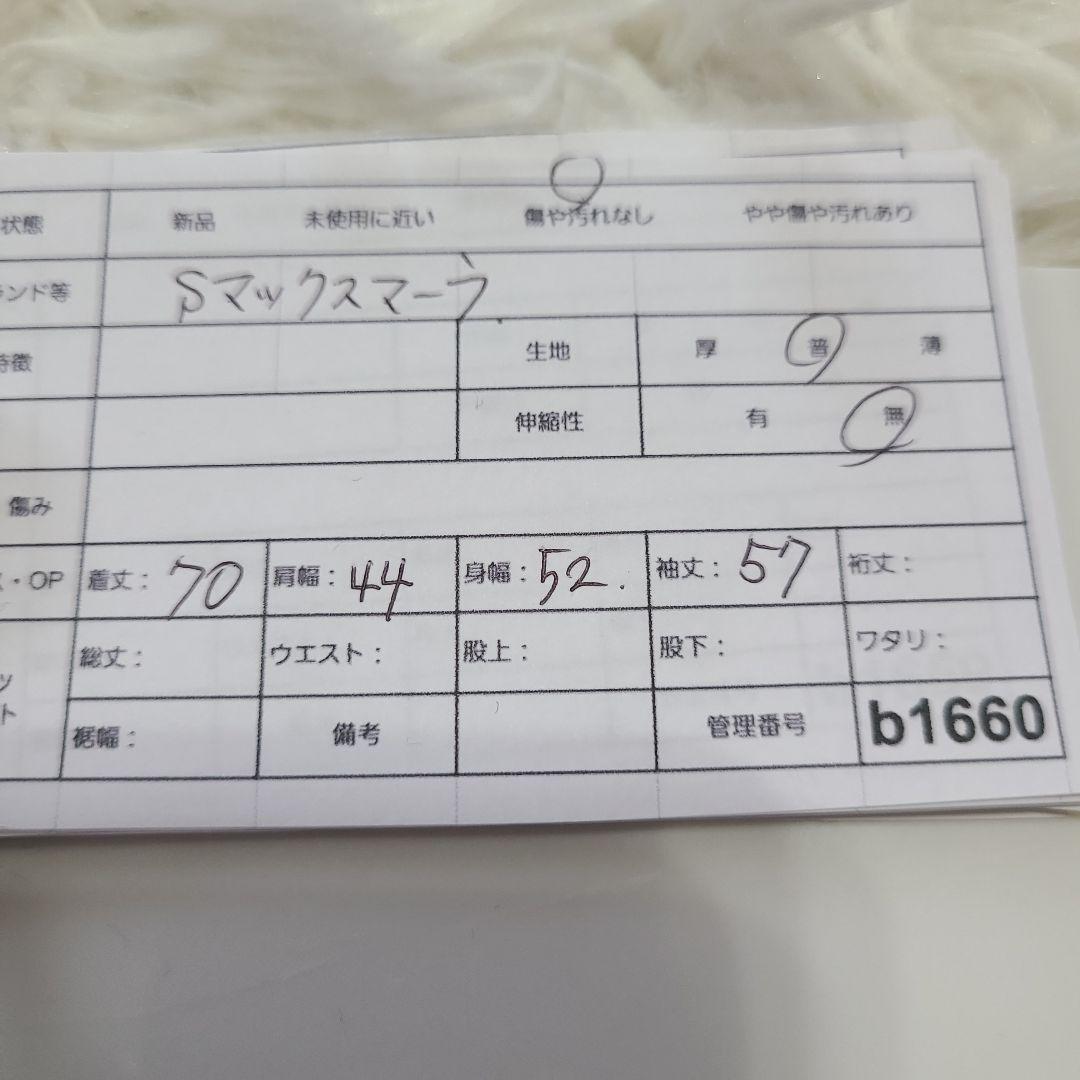 状態 新品 未使用に近い 傷や汚れなし やや傷や汚れあり
ランド等 Sマックスマーラ
特徴 生地 厚 普 薄
伸縮性 有 無
傷み
・OP 着丈: 70 肩幅: 44 身幅: 52. 袖丈: 57 裄丈:
総丈: ウエスト: 股上: 股下: ワタリ:
ッ
ト
裾幅: 備考 管理番号 b1660